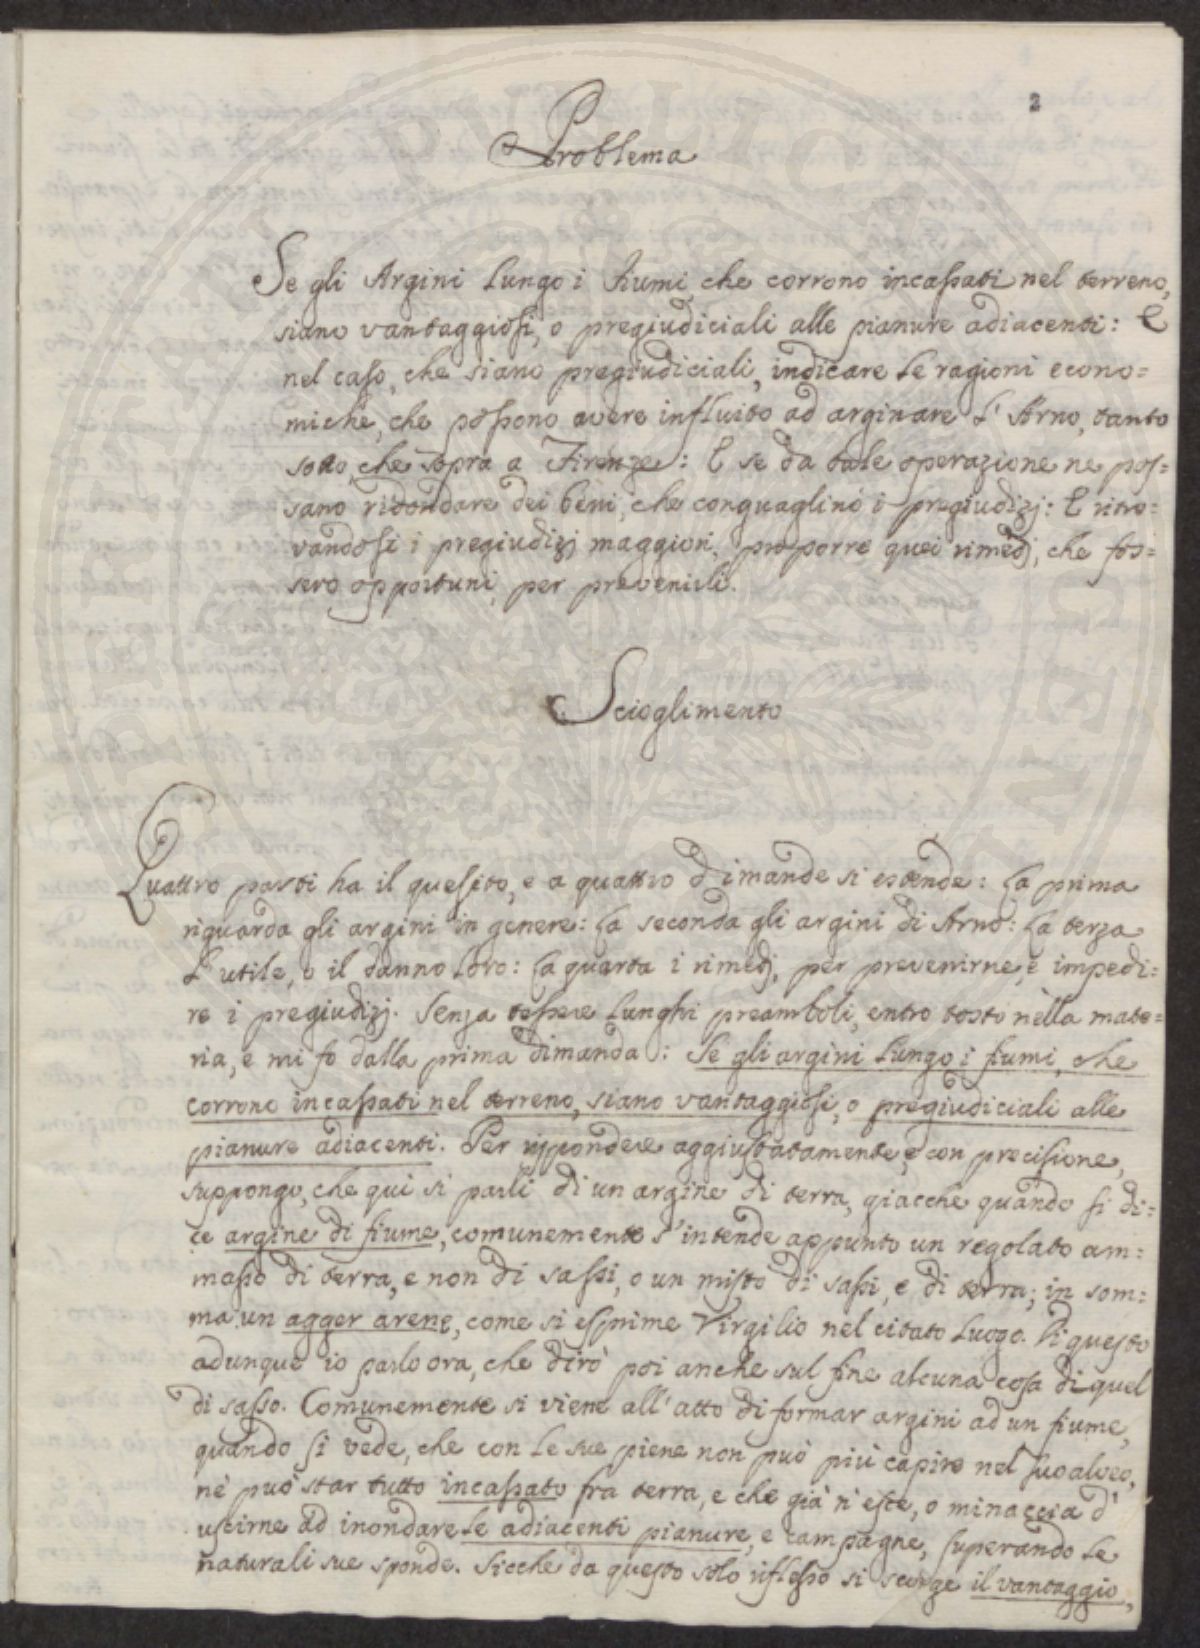 2
Problema
Se gli Argini lungo i Fiumi che corrono incassati nel terreno,
siano vantaggiosi, o pregiudiciali alle pianure adiacenti: E
nel caso, che siano pregiudiciali, indicare le ragioni econo=
miche, che possono avere influito ad arginare l'Arno, tanto
sotto, che sopra a Firenze: E se da tale operazione ne pos=
sano ridondare dei beni, che conguaglino i pregiudizj: E ritro=
vandosi i pregiudizj maggiori, proporre quei rimedj, che fos=
sero opportuni, per prevenirli.
Scioglimento
Quattro parti ha il quesito, e a quattro dimande si estende: La prima
riguarda gli argini in genere: La seconda gli argini di Arno: La terza
l'utile, o il danno loro: La quarta i rimedj, per prevenirne, e impedi=
re i pregiudizj. Senza tessere lunghi preamboli, entro tosto nella mate=
ria, e mi fo dalla prima dimanda: Se gli argini lungo i fiumi, che
corrono incassati nel terreno, siano vantaggiosi, o pregiudiciali alle
pianure adiacenti. Per rispondere aggiustatamente, e con precisione,
suppongo, che qui si parli di un argine di terra, giacchè quando si di=
ce argine di fiume, comunemente s'intende appunto un regolato am=
masso di terra, e non di sassi, o un misto di sassi, e di terra; in som=
ma un agger arenę, come si esprime Virgilio nel citato luogo. Di questo
adunque io parlo ora, che dirò poi anche sul fine alcuna cosa di quel
di sasso. Comunemente si viene all'atto di formar argini ad un fiume,
quando si vede, che con le sue piene non può più capire nel suo alveo,
nè può star tutto incassato fra terra, e che già n'esce, o minaccia d'
uscirne ad inondare le adiacenti pianure, e campagne, superando le
naturali sue sponde. Sicchè da questo solo riflesso si scorge il vantaggio,